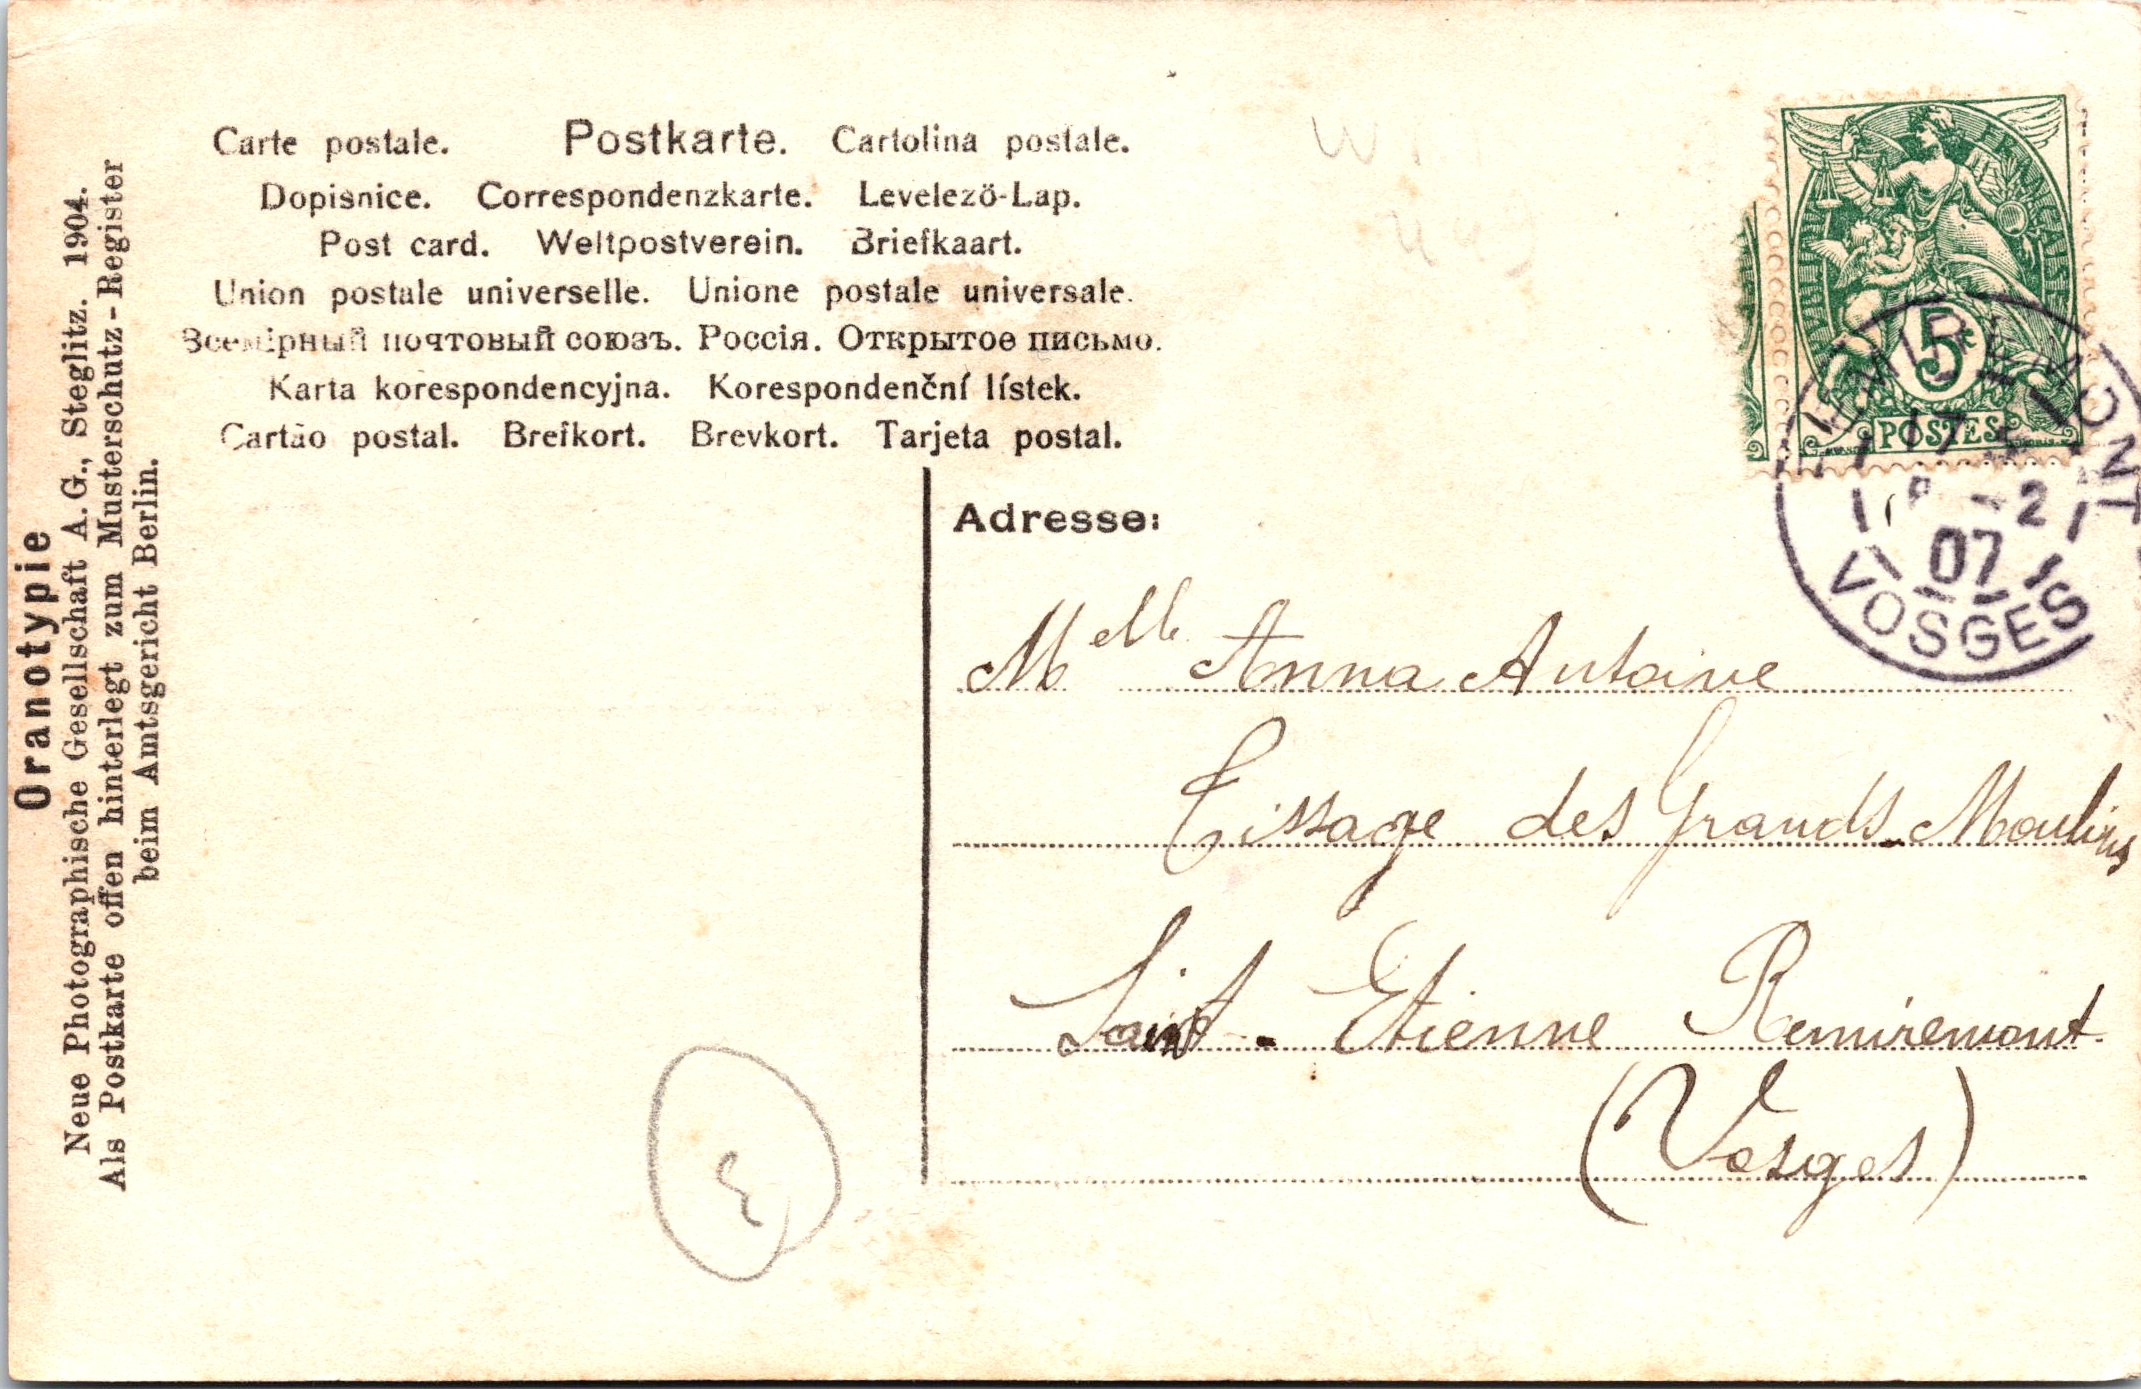 Carte postale. Postkarte. Cartolina postale.
Dopisnice. Correspondenzkarte. Levelezö-Lap.
Post card. Weltpostverein. Briefkaart.
Union postale universelle. Unione postale universale.
Всемірный почтовый союзъ. Россія. Открытое письмо.
Karta korespondencyjna. Korespondenční lístek.
Cartão postal. Brefkort. Brevkort. Tarjeta postal.
Oranotypie
Neue Photographische Gesellschaft A. G., Steglitz. 1904.
Als Postkarte offen hinterlegt zum Musterschutz-Register
beim Amtsgericht Berlin.
5
POSTES
REMIREMONT
17
-2
07
VOSGES
Adresse:
Melle Anna Antoine
Tissage des Grands-Moulins
Saint-Etienne Remiremont.
(Vosges)